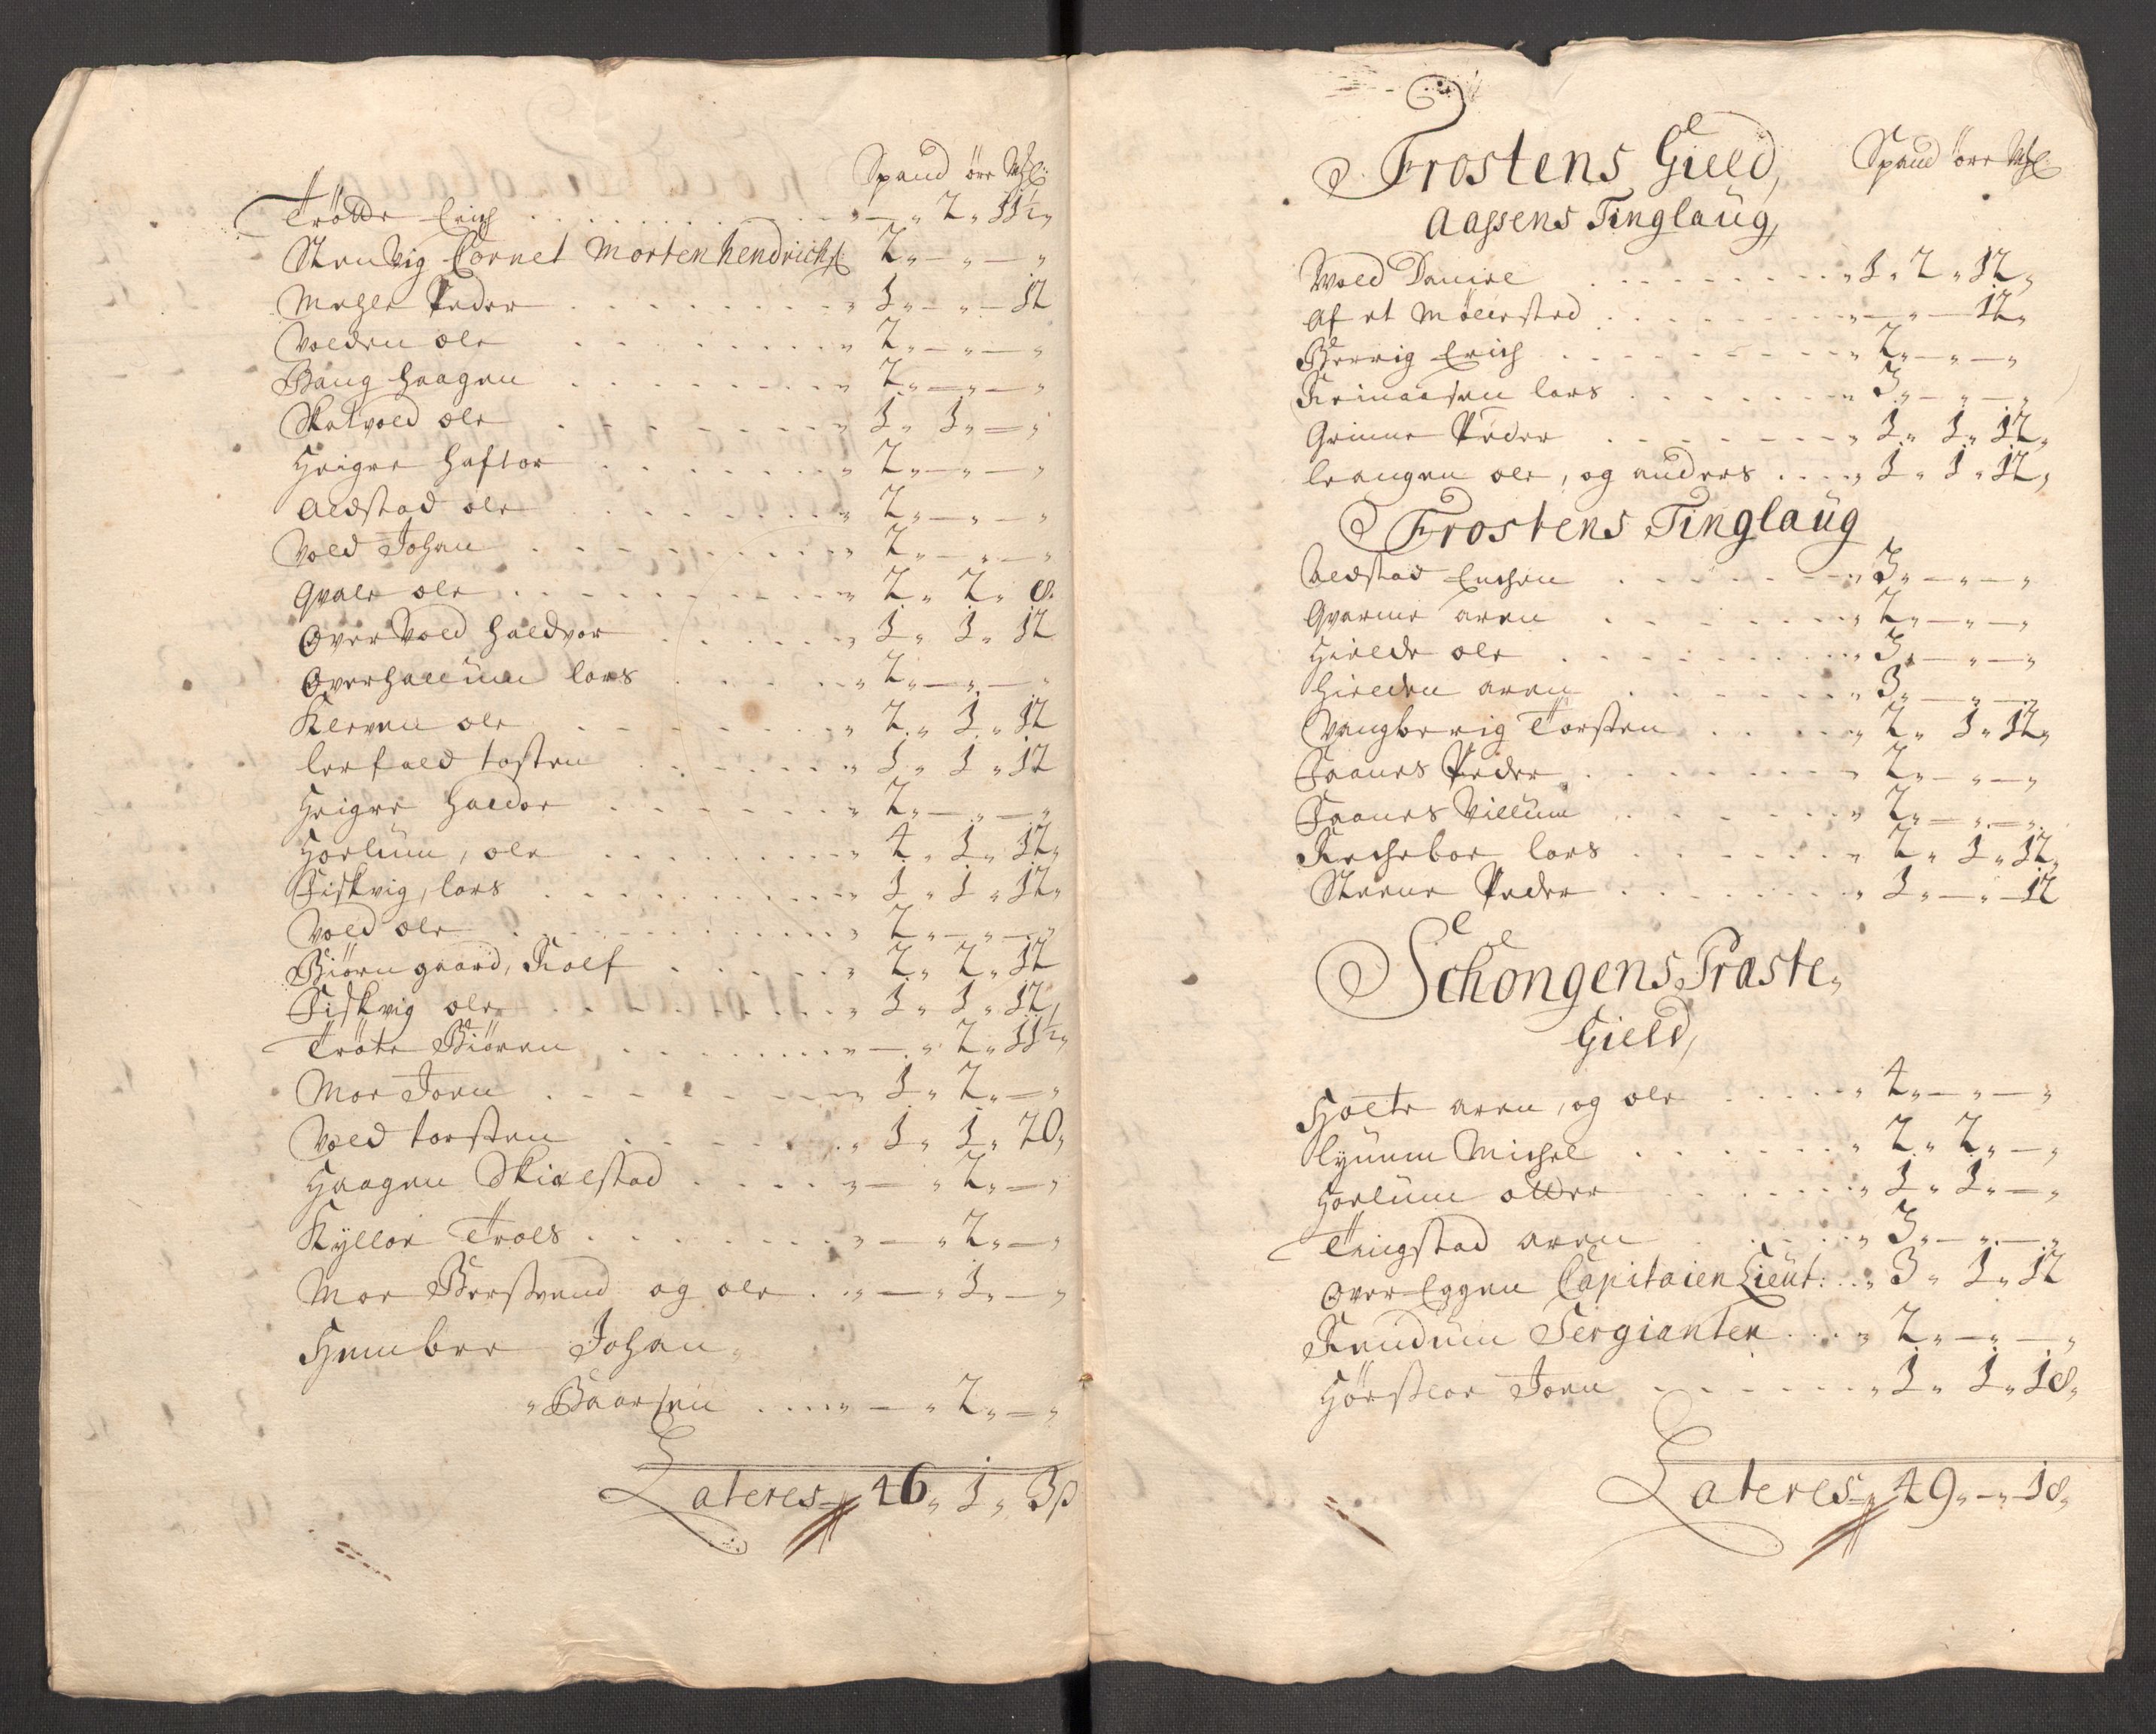 Spand öre Mkl:
Trötte Erich . . . . . „ — „ 2 „ 11½ „
Stenvig Cornet Morten hendrichs: 2 „ — „ — „
Mæhle Peder . . . . „ 1 „ — „ — 12
Volden ole . . . . „ 2 „ — „ — „
Bang haagen . . . . „ 2 „ — „ — „
Skatvold ole . . . . „ 1 „ 1 „ — „
Heigre haftor . . . . „ 2 „ — „ — „
Aldstad ole . . . . „ 2 „ — „ — „
Vold Johan . . . . „ 2 „ — „ — „
Qvale ole . . . . „ 2 „ 2 „ 8.
Overvold haldvor . . . . „ 1 „ 1 „ 12
Overhallum lars . . . . „ 2 „ — „ — „
Kleven ole . . . . „ 2 „ 1 „ 12
lerfald tosten . . . . „ 1 „ 1 „ 12
Heigre haldor . . . . „ 2 „ — „ — „
Horlüm, ole . . . . „ 4 „ 1 „ 12 „
Fiskvig, lars . . . . „ 1 „ 1 „ 12 „
Vold ole . . . . „ 2 „ — „ — „
Biörngaard, Rolf . . . . „ 2 „ 2 „ 12
Fiskvig ole . . . . „ 1 „ 1 „ 12 „
Tröte Biören . . . . „ — „ 2 „ 11½ „
Moe Joen . . . . „ 1 „ 2 „ — „
Vold torsten . . . . „ 1 „ 1 „ 20 „
Haagen Skielstad . . . . „ — „ 2 „ — „
Kyllor Troels . . . . „ — „ 2 „ — „
Moe Berstvend og ole . . „ — „ 1 „ — „
Hembre Johan
„ Baarsen . . . . „ — „ 2 „ — „
Lateres 46 „ 1 „ 3 „
Frostens Gield, Spand öre Mkl:
Aassens Tinglaüg,
Wold Daniel . . . . „ 1 „ 2 „ 12 „
Af et Möllested . . . . „ — „ — 12 „
Berrig Erich . . . . „ 2 „ — „ — „
lars . . . . „ 3 „ — „ — „
Grinne Peder . . . . „ 1 „ 1 „ 12 „
leangen ole, og anders . . . . „ 1 „ 1 „ 12 „
Frostens Tinglaüg
Aldstad Enchen . . . . „ 3 „ — „ — „
Qvarme aren . . . . „ 2 „ — „ — „
Hielde ole . . . . „ 3 „ — „ — „
hielden aren . . . . „ 3 „ — „ — „
Vangberig Torsten . . . . „ 2 „ 1 „ 12 „
Faanes Peder . . . . „ 2 „ — „ — „
Faanes Villum . . . . „ 2 „ — „ — „
Recheboe lars . . . . „ 2 „ 1 „ 12 „
Steene Peder . . . . „ 1 „ — „ — 12
Schongens Præste,
Gield,
Holte aren, og ole . . . . „ 4 „ — „ — „
lyünum Michel . . . . „ 2 „ 2 „ — „
Horlüm otter . . . . „ 1 „ 1 „ — „
Tingstad aren . . . . „ 3 „ — „ — „
Over Eggen Capitaien Lieut: . . „ 3 „ 1 „ 12
Rendüm Sergianten . . . „ 2 „ — „ — „
Hörstloe Joen . . . . „ 1 „ 1 „ 18 „
Lateres 49 „ — „ 18 „